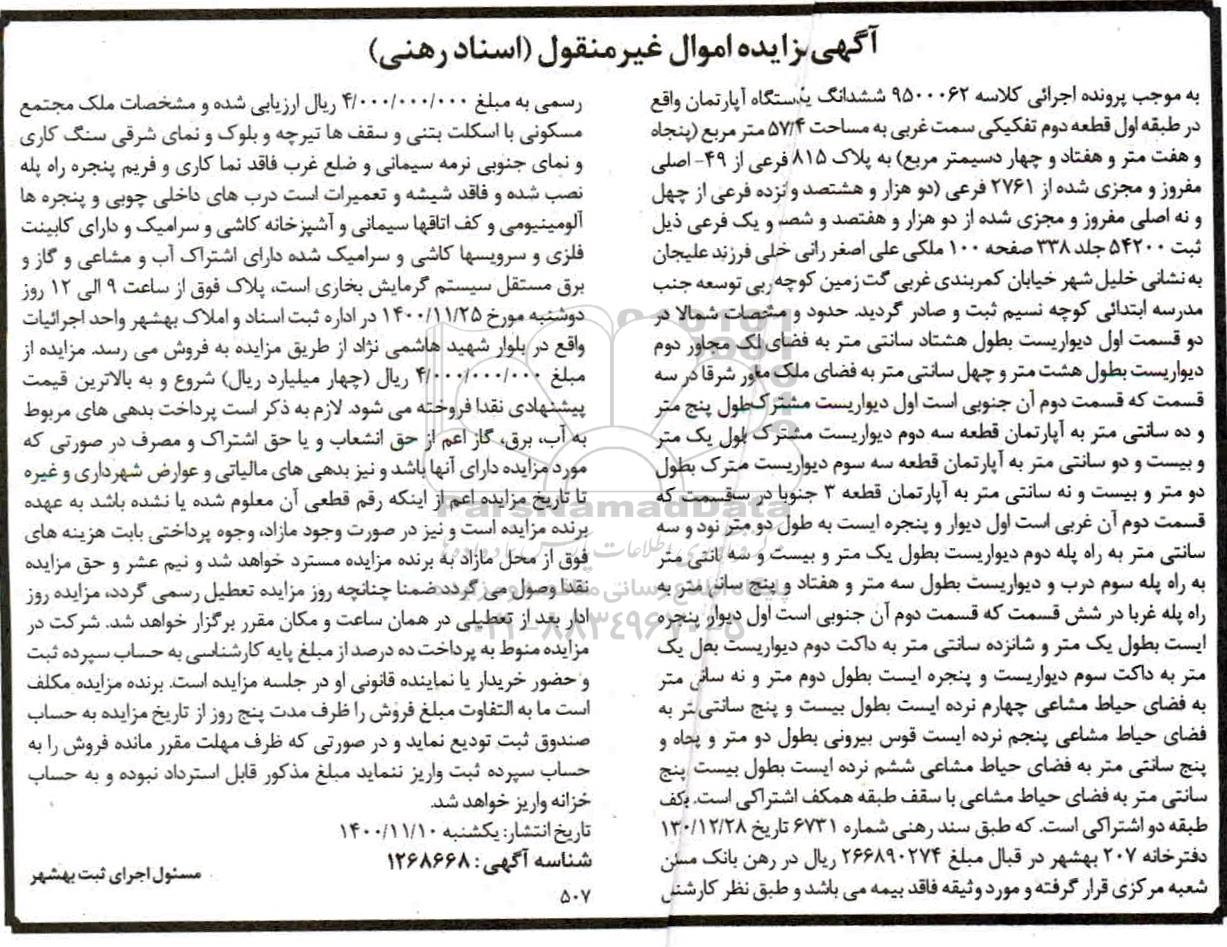 آگهی مزایده اموال غیرمنقول (اسناد رهنی)
به موجب پرونده اجرائی کلاسه ۹۵۰۰۰۶۲ ششدانگ یکدستگاه آپارتمان واقع
در طبقه اول قطعه دوم تفکیکی سمت غربی به مساحت ۵۷/۴ متر مربع (پنجاه
و هفت متر و هفتاد و چهار دسیمتر مربع) به پلاک ۸۱۵ فرعی از ۴۹- اصلی
مفروز و مجزی شده از ۲۷۶۱ فرعی (دو هزار و هشتصد و پانزده فرعی از چهل
و نه اصلی مفروز و مجزی شده از دو هزار و هفتصد و شصت و یک فرعی ذیل
ثبت ۵۴۲۰۰ جلد ۳۳۸ صفحه ۱۰۰ ملکی علی اصغر رانی خلی فرزند علیجان
به نشانی خلیل شهر خیابان کمربندی غربی گت زمین کوچه ربی توسعه جنب
مدرسه ابتدائی کوچه نسیم ثبت و صادر گردید. حدود و مشخصات شمالا در
دو قسمت اول دیواریست بطول هشتاد سانتی متر به فضای ملک مجاور دوم
دیواریست بطول هشت متر و چهل سانتی متر به فضای ملک مجاور شرقا در سه
قسمت که قسمت دوم آن جنوبی است اول دیواریست مشترک بطول پنج متر
و ده سانتی متر به آپارتمان قطعه سه دوم دیواریست مشترک بطول یک متر
و بیست و دو سانتی متر به آپارتمان قطعه سه سوم دیواریست مشترک بطول
دو متر و بیست و نه سانتی متر به آپارتمان قطعه ۳ جنوبا در سه قسمت که
قسمت دوم آن غربی است اول دیوار و پنجره ایست به طول دو متر نود و سه
سانتی متر به راه پله دوم دیواریست بطول یک متر و بیست و سه سانتی متر
به راه پله سوم درب و دیواریست بطول سه متر و هفتاد و پنج سانتی متر به
راه پله غربا در شش قسمت که قسمت دوم آن جنوبی است اول دیوار پنجره
ایست بطول یک متر و شانزده سانتی متر به داکت دوم دیواریست بطول یک
متر به داکت سوم دیواریست و پنجره ایست بطول دوم متر و نه سانتی متر
به فضای حیاط مشاعی چهارم نرده ایست بطول بیست و پنج سانتی متر به
فضای حیاط مشاعی پنجم نرده ایست قوس بیرونی بطول دو متر و پنجاه و
پنج سانتی متر به فضای حیاط مشاعی ششم نرده ایست بطول بیست پنج
سانتی متر به فضای حیاط مشاعی با سقف طبقه همکف اشتراکی است. بکف
طبقه دو اشتراکی است. که طبق سند رهنی شماره ۶۷۳۱ تاریخ ۱۳۰/۱۲/۲۸
دفترخانه ۲۰۷ بهشهر در قبال مبلغ ۲۶۶۸۹۰۲۷۴ ریال در رهن بانک مسکن
شعبه مرکزی قرار گرفته و مورد وثیقه فاقد بیمه می باشد و طبق نظر کارشناس
رسمی به مبلغ ۴/۰۰۰/۰۰۰/۰۰۰ ریال ارزیابی شده و مشخصات ملک مجتمع
مسکونی با اسکلت بتنی و سقف ها تیرچه و بلوک و نمای شرقی سنگ کاری
و نمای جنوبی نرمه سیمانی و ضلع غرب فاقد نما کاری و فریم پنجره راه پله
نصب شده و فاقد شیشه و تعمیرات است درب های داخلی چوبی و پنجره ها
آلومینیومی و کف اتاقها سیمانی و آشپزخانه کاشی و سرامیک و دارای کابینت
فلزی و سرویسها کاشی و سرامیک شده دارای اشتراک آب و مشاعی و گاز و
برق مستقل سیستم گرمایش بخاری است، پلاک فوق از ساعت ۹ الی ۱۲ روز
دوشنبه مورخ ۱۴۰۰/۱۱/۲۵ در اداره ثبت اسناد و املاک بهشهر واحد اجرائیات
واقع در بلوار شهید هاشمی نژاد از طریق مزایده به فروش می رسد. مزایده از
مبلغ ۴/۰۰۰/۰۰۰/۰۰۰ ریال (چهار میلیارد ریال) شروع و به بالاترین قیمت
پیشنهادی نقدا فروخته می شود. لازم به ذکر است پرداخت بدهی های مربوط
به آب، برق، گاز اعم از حق انشعاب و یا حق اشتراک و مصرف در صورتی که
مورد مزایده دارای آنها باشد و نیز بدهی های مالیاتی و عوارض شهرداری و غیره
تا تاریخ مزایده اعم از اینکه رقم قطعی آن معلوم شده یا نشده باشد به عهده
برنده مزایده است و نیز در صورت وجود مازاد، وجوه پرداختی بابت هزینه های
فوق از محل مازاد به برنده مزایده مسترد خواهد شد و نیم عشر و حق مزایده
نقدا وصول می گردد ضمنا چنانچه روز مزایده تعطیل رسمی گردد، مزایده روز
ادار بعد از تعطیلی در همان ساعت و مکان مقرر برگزار خواهد شد. شرکت در
مزایده منوط به پرداخت ده درصد از مبلغ پایه کارشناسی به حساب سپرده ثبت
و حضور خریدار یا نماینده قانونی او در جلسه مزایده است. برنده مزایده مکلف
است ما به التفاوت مبلغ فروش را ظرف مدت پنج روز از تاریخ مزایده به حساب
صندوق ثبت تودیع نماید و در صورتی که ظرف مهلت مقرر مانده فروش را به
حساب سپرده ثبت واریز ننماید مبلغ مذکور قابل استرداد نبوده و به حساب
خزانه واریز خواهد شد.
تاریخ انتشار: یکشنبه ۱۴۰۰/۱۱/۱۰
شناسه آگهی: ۱۲۶۸۶۶۸
مسئول اجرای ثبت بهشهر
۵۰۷
ParsNamadData